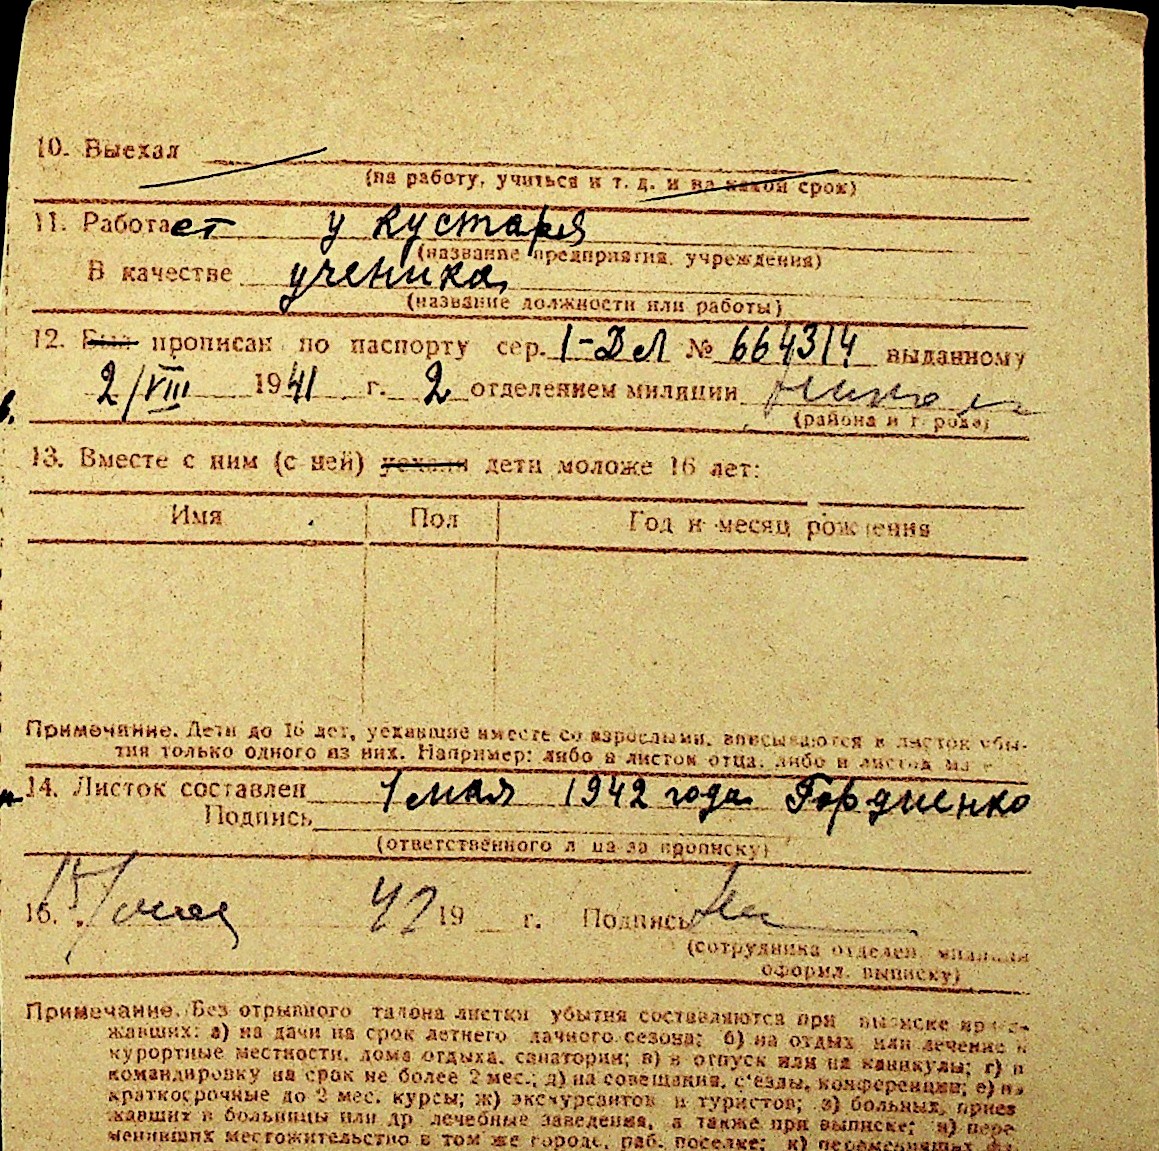 10. Выехал
(на работу, учиться и т. д. и на какой срок)
11. Работает у кустаря
(название предприятия, учреждения)
В качестве ученика
(название должности или работы)
12. Был прописан по паспорту сер. I-ДЛ № 664314 выданному
2/VIII 1941 г. 2 отделением милиции
(района и города)
13. Вместе с ним (с ней) уехали дети моложе 16 лет:
Имя Пол Год и месяц рождения
Примечание. Дети до 16 лет, уехавшие вместе со взрослыми, вписываются в листок убы-
тия только одного из них. Например: либо в листок отца, либо в листок
14. Листок составлен 1 мая 1942 года Гордиенко
Подпись
(ответственного лица за прописку)
15. 15/мая 42 19 г. Подпись
(сотрудника отделен. милиции
оформл. выписку)
Примечание. Без отрывного талона листки убытия составляются при выписке
жавших: а) на дачи на срок летнего дачного сезона; б) на отдых или лечение в
курортные местности, дома отдыха, санатории; в) в отпуск или на каникулы; г) в
командировку на срок не более 2 мес.; д) на совещания, с'езды, конференции; е) на
краткосрочные до 2 мес. курсы; ж) экскурсантов и туристов; з) больных, приез
жавших в больницы или др лечебные заведения, а также при выписке; и) пере
менивших местожительство в том же городе, раб. поселке; к)